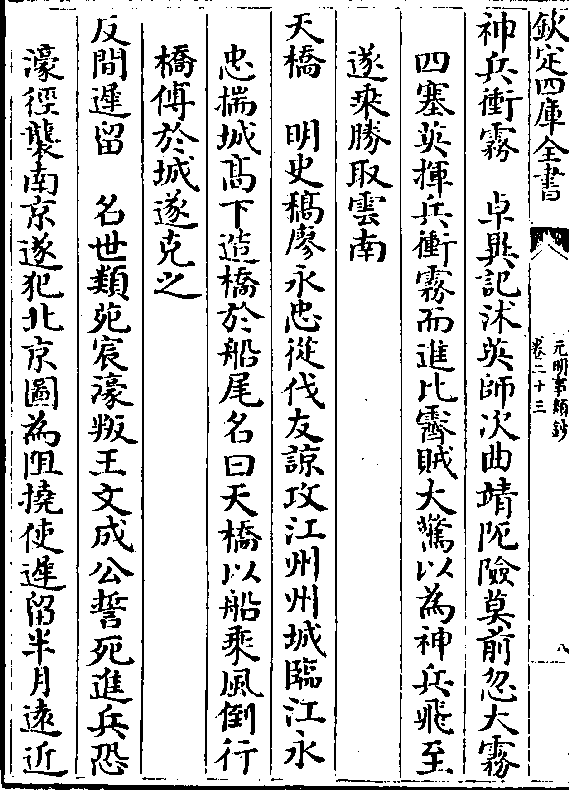 欽定四庫全書
元明事類鈔
卷二十三
八
神兵衝霧　卓異記沐英師次曲靖阨險莫前忽大霧
四塞英揮兵衝霧而進比霽賊大驚以為神兵飛至
遂乘勝取雲南
天橋　明史稿廖永忠從伐友諒攻江州州城臨江永
忠揣城高下造橋於船尾名曰天橋以船乘風倒行
橋傅於城遂克之
反間遲留　名世類苑宸濠叛王文成公誓死進兵恐
濠徑襲南京遂犯北京圖為阻撓使遲留半月遠近